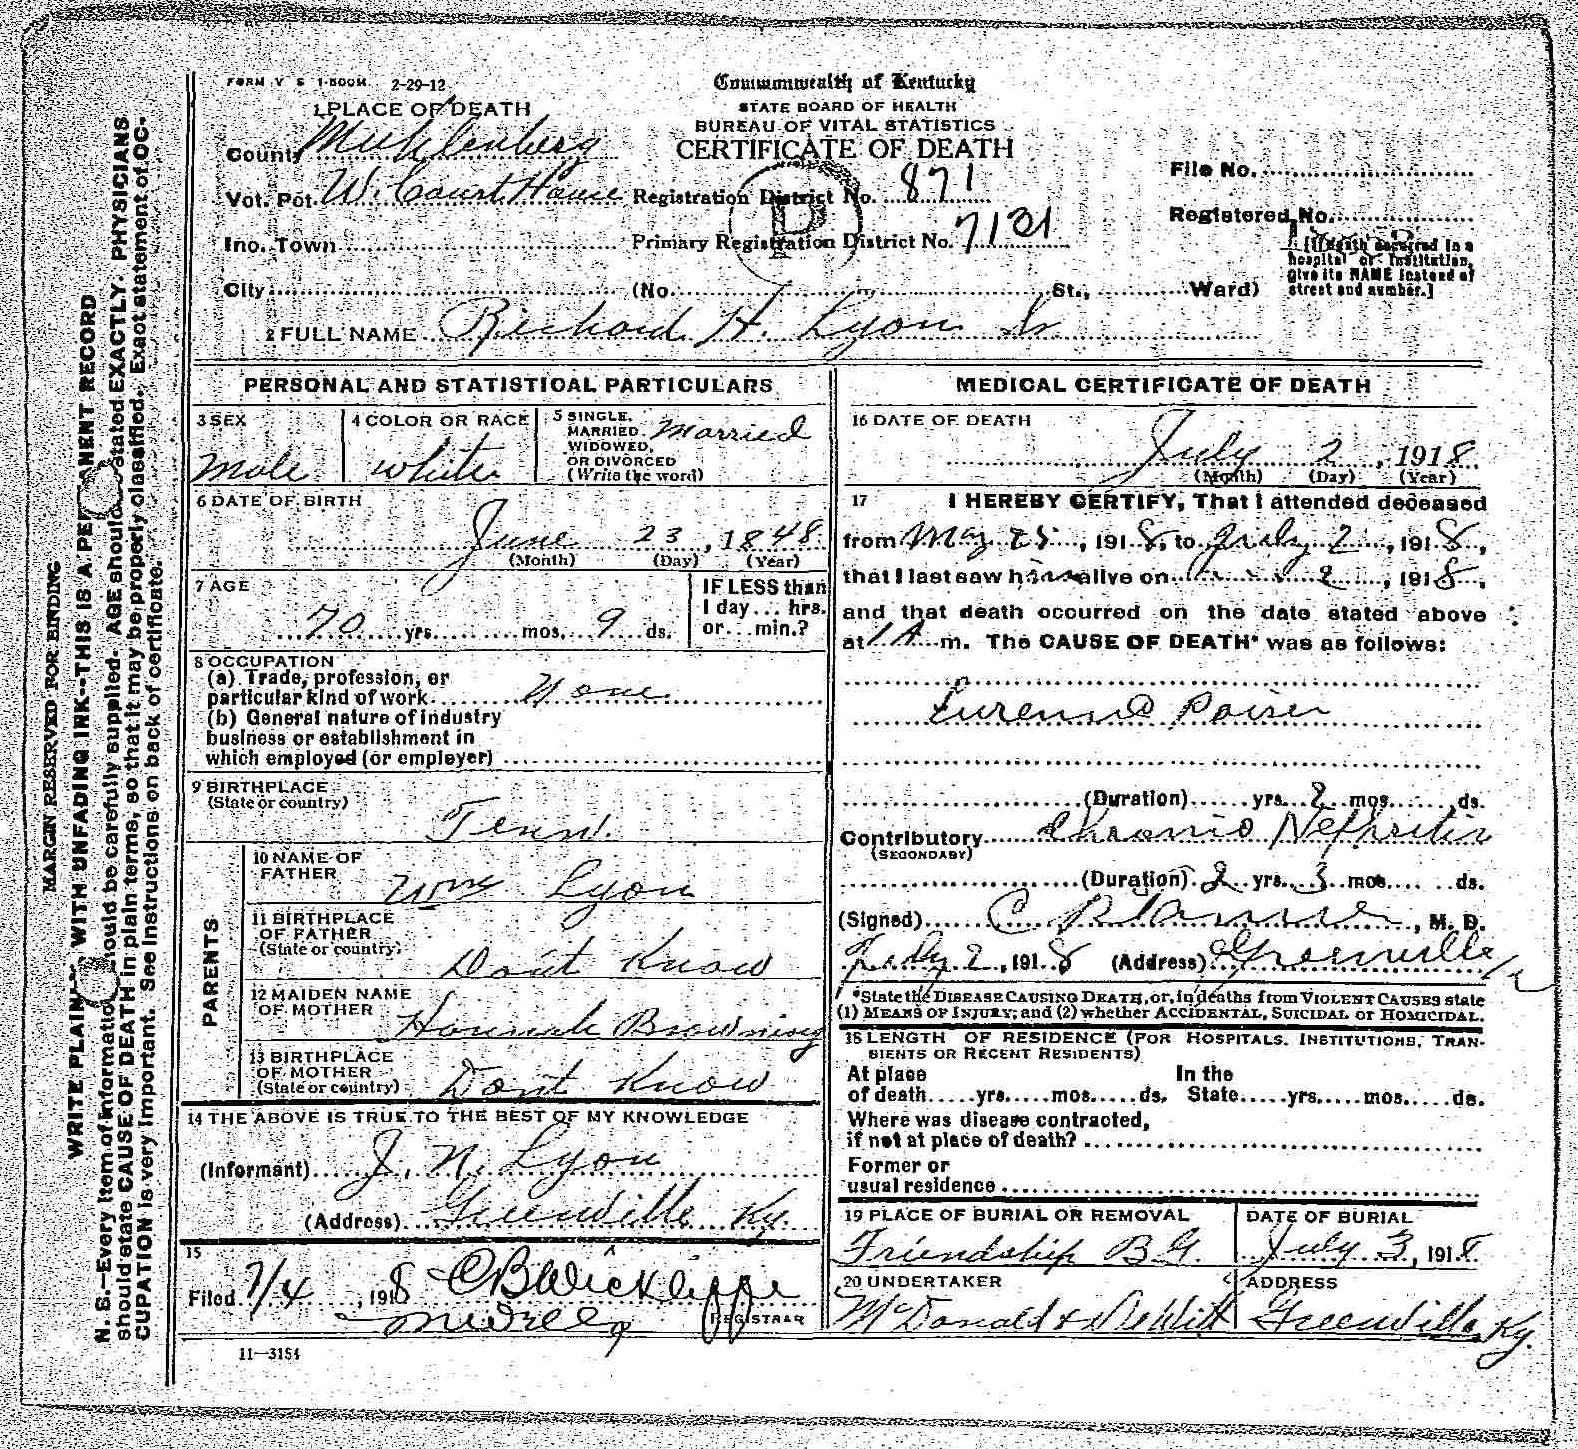 FORM V S 1-500M 2-29-12
Commonwealth of Kentucky
STATE BOARD OF HEALTH
BUREAU OF VITAL STATISTICS
CERTIFICATE OF DEATH
1 PLACE OF DEATH
County Muhlenberg
Vot. Pct. W. Court House Registration District No. 871
Ino. Town Primary Registration District No. 7131
City (No. St., Ward)
File No.
Registered No.
[If death occurred in a
hospital or institution,
give its NAME instead of
street and number.]
2 FULL NAME Richard H. Lyon Sr
PERSONAL AND STATISTICAL PARTICULARS
3 SEX
Male
4 COLOR OR RACE
White
5 SINGLE,
MARRIED,
WIDOWED,
OR DIVORCED
(Write the word)
Married
6 DATE OF BIRTH
June 23, 1848
(Month) (Day) (Year)
7 AGE
70 yrs. mos. 9 ds.
IF LESS than
1 day... hrs.
or... min.?
8 OCCUPATION
(a) Trade, profession, or
particular kind of work None
(b) General nature of industry
business or establishment in
which employed (or employer)
9 BIRTHPLACE
(State or country)
Tenn.
PARENTS
10 NAME OF
FATHER
Wm Lyon
11 BIRTHPLACE
OF FATHER
(State or country)
Dont Know
12 MAIDEN NAME
OF MOTHER
Hannah Browning
13 BIRTHPLACE
OF MOTHER
(State or country)
Dont Know
14 THE ABOVE IS TRUE TO THE BEST OF MY KNOWLEDGE
(Informant) J. N. Lyon
(Address) Greenville Ky.
15
Filed 7/4, 1918 C B Wickliffe
REGISTRAR
11-3151
MEDICAL CERTIFICATE OF DEATH
16 DATE OF DEATH
July 2, 1918
(Month) (Day) (Year)
17 I HEREBY CERTIFY, That I attended deceased
from May 25, 1918, to July 2, 1918,
that I last saw him alive on 2, 1918,
and that death occurred on the date stated above
at 1 A m. The CAUSE OF DEATH* was as follows:
(Duration) yrs. 2 mos. ds.
Contributory Chronic Nephritis
(SECONDARY)
(Duration) 2 yrs. 3 mos. ds.
(Signed) C , M. D.
July 2, 1918 (Address) Greenville
*State the DISEASE CAUSING DEATH, or, in deaths from VIOLENT CAUSES state
(1) MEANS OF INJURY; and (2) whether ACCIDENTAL, SUICIDAL or HOMICIDAL.
18 LENGTH OF RESIDENCE (FOR HOSPITALS, INSTITUTIONS, TRAN-
SIENTS OR RECENT RESIDENTS)
At place In the
of death.....yrs.....mos.....ds. State.....yrs.....mos.....ds.
Where was disease contracted,
if not at place of death?
Former or
usual residence
19 PLACE OF BURIAL OR REMOVAL
Friendship B G.
DATE OF BURIAL
July 3, 1918
20 UNDERTAKER
McDonald & DeWitt
ADDRESS
Greenville Ky.
MARGIN RESERVED FOR BINDING
WRITE PLAINLY WITH UNFADING INK--THIS IS A PERMANENT RECORD
N. B.—Every item of information should be carefully supplied. AGE should be stated EXACTLY. PHYSICIANS
should state CAUSE OF DEATH in plain terms, so that it may be properly classified. Exact statement of OC-
CUPATION is very important. See instructions on back of certificate.